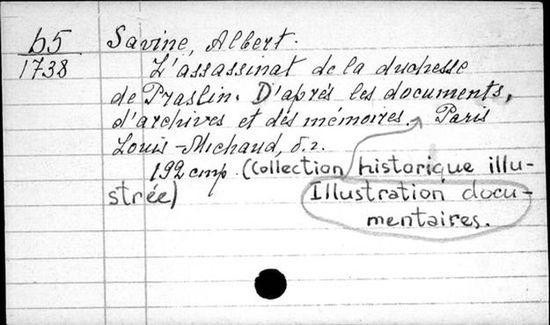 b5
1738
Savine, Albert.
L'assassinat de la duchesse
de Praslin. D'après les documents,
d'archives et des mémoires. Paris
Louis-Michaud, б.г.
192 стр. (Collection historique illu-
strée)
Illustration docu-
mentaires.